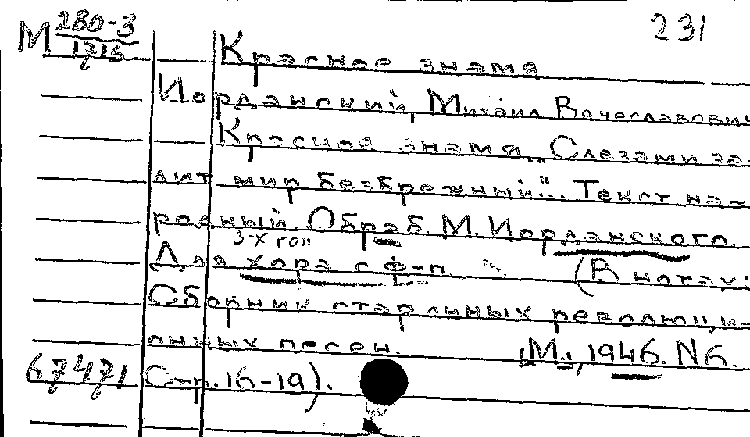 М 280-3 231
1215
Красное знамя
Иорданский, Михаил Вячеславович
Красное знамя. "Слезами за-
лит мир безбрежный"... Текст на-
родный. Обраб. М. Иорданского
3-х гол
Для хора с ф-п. (В нотах:
Сборник старинных революцио-
нных песен. М., 1946. N6.
67471 Стр. 16-19).